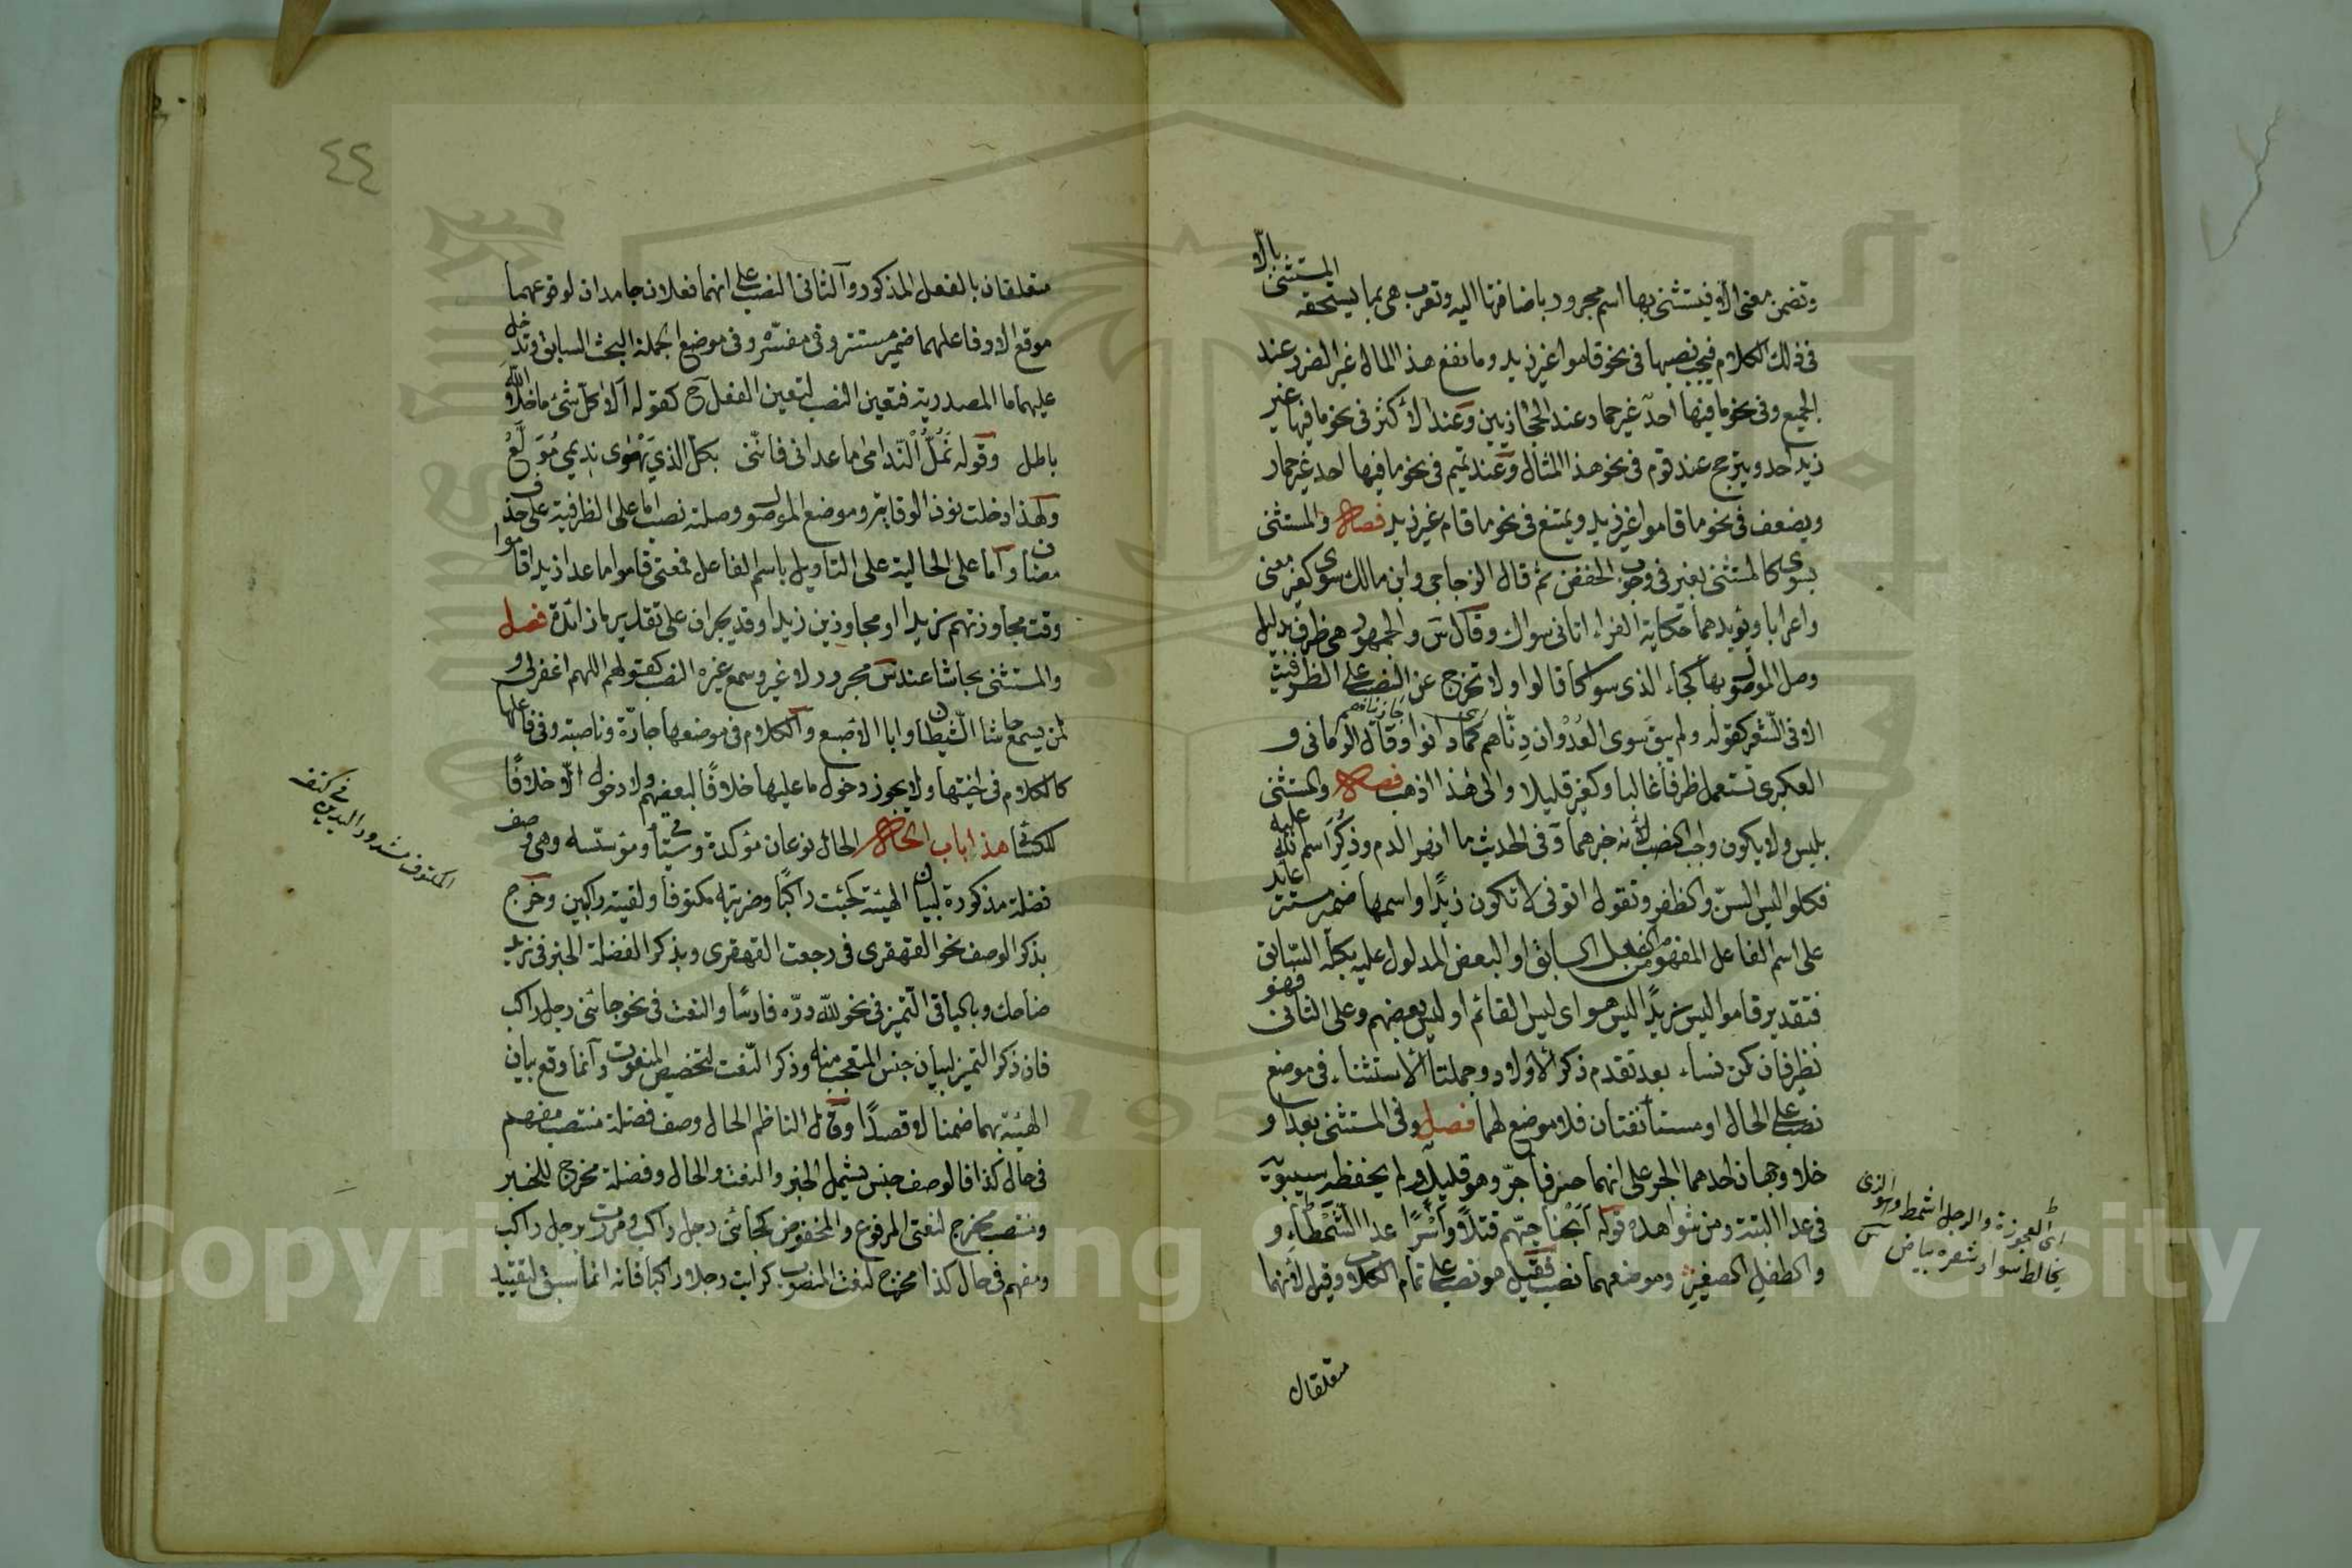 وتضمن معنى الا فيستثنى بها اسم مجرور باضافتها اليه وتعرب هى بما يستحقه المستثنى بالا
فى ذلك الكلام فيجب نصبها فى نحو قاموا غير زيد وما نفع هذا المال غير الضرر عند
الجميع وفى نحو ما فيها احد غير حمار عند الحجازيين وعند الاكثر فى نحو ما فيها غير
زيد احد ويترجح عند قوم فى نحو هذا المثال وعند تميم فى نحو ما فيها احد غير حمار
ويضعف فى نحو ما قاموا غير زيد ويمتنع فى نحو ما قام غير زيد فصل والمستثنى
بسوى كالمستثنى بغير فى وجوب الخفض ثم قال الزجاجى وابن مالك سوى كغير معنى
واعرابا ويؤيدهما حكاية الفراء اتانى سواك وقال س والجمهور هى ظرف بدليل
وصل الموصول بها كجاء الذى سواك قالوا ولا تخرج عن النصب على الظرفية
الا فى الشعر كقوله ولم يبق سوى العدوان دناهم كما دانوا وقال الرمانى و
العكبرى تستعمل ظرفا غالبا وكغير قليلا والى هذا اذهب فصل والمستثنى
بليس ولا يكون واجب النصب لانه خبرهما وفى الحديث ما انهر الدم وذكر اسم الله عليه
فكلوا ليس السن والظفر وتقول اتونى لا تكون زيدا واسمها ضمير مستتر عايد
على اسم الفاعل المفهوم من الفعل السابق او البعض المدلول عليه بكله السابق
فتقدير قاموا ليس زيدا ليس هو اى ليس القائم او ليس بعضهم وعلى الثانى فهو
نظير فان كن نساء بعد تقدم ذكر الاولاد وجملتا الاستثناء فى موضع
نصب على الحال او مستأنفتان فلا موضع لهما فصل وفى المستثنى بعدا و
خلا وجهان احدهما الجر على انهما حرفا جر وهو قليل ولم يحفظه سيبويه
فى عدا البتة ومن شواهده قوله ابحنا حيهم قتلا وأسرا عدا الشمطاء و
والطفل الصغير وموضعهما نصب فقيل هو نصب على تمام الكلام وقيل لانهما
متعلقان
اى العجوزة والرجل اشمط وهو الذى
يخالط سواد شعره بياض
٤٤
متعلقان بالفعل المذكور والثانى النصب على انهما فعلان جامدان لوقوعهما
موقع الا وفاعلهما ضمير مستتر وفى مفسره وفى موضع الجملة البحث السابق وتدخل
عليهما ما المصدرية فتعين النصب لتعين الفعل ح كقوله الا كل شئ ما خلا الله
باطل وقوله تمل الندامى ما عدانى فاننى بكل الذى يهوى نديمى مولع
ولهذا دخلت نون الوقاية وموضع الموصول وصلته نصب اما على الظرفية على حذف
مضاف واما على الحالية على التاويل باسم الفاعل فمعنى قاموا ما عدا زيدا قاموا
وقت مجاوزتهم زيدا او مجاوزين زيدا وقد يجران على تقدير ما زائدة فصل
والمستثنى بحاشا عند س مجرور لا غير وسمع غيره النصب كقولهم اللهم اغفر لى و
لمن يسمع حاشا الشيطان وابا الاصبع والكلام فى موضعها جارة وناصبة وفى فاعلها
كالكلام فى اختيها ولا يجوز دخول ما عليها خلافا لبعضهم ولا دخول الا خلافا
للكسائى هذا باب الحال الحال نوعان مؤكدة وستأتى ومؤسسه وهى وصف
فضلة مذكورة لبيان الهيئة كجئت راكبا وضربته مكتوفا ولقيته راكبين وخرج
بذكر الوصف نحو القهقرى فى رجعت القهقرى وبذكر الفضلة الخبر فى زيد
ضاحك وبالباقى التمييز فى نحو لله دره فارسا والنعت فى نحو جائنى رجل راكب
فان ذكر التمييز لبيان جنس المتعجب منه وذكر النعت لتخصيص المنعوت وانما وقع بيان
الهيئة بهما ضمنا لا قصدا وقال الناظم الحال وصف فضلة منتصب مفهم
فى حال كذا فالوصف جنس يشمل الخبر والنعت والحال وفضلة مخرج للخبر
ومنتصب مخرج لنعتى المرفوع والمخفوض كجائنى رجل راكب ومررت برجل راكب
ومفهم فى حال كذا مخرج لنعت المنصوب كرايت رجلا راكبا فانه انما سبق لتقييد
المكتوف مشدود اليدين
Copyright © King Saud University